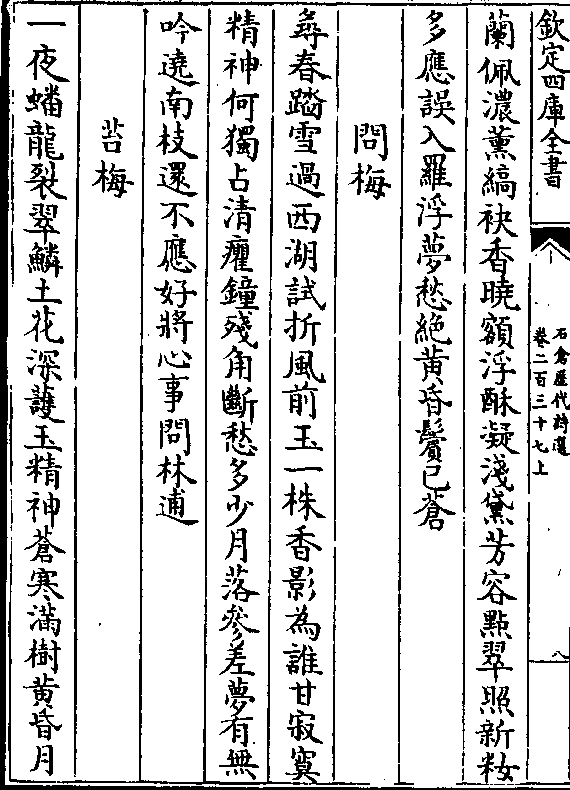 欽定四庫全書
石倉歷代詩選
卷二百三十七上
八
蘭佩濃薰縞袂香曉額浮酥凝淺黛芳容點翠照新妝
多應誤入羅浮夢愁絶黄昏鬢已蒼
問梅
尋春踏雪過西湖試折風前玉一株香影為誰甘寂寞
精神何獨占清癯鐘殘角斷愁多少月落參差夢有無
吟遶南枝還不應好將心事問林逋
苔梅
一夜蟠龍裂翠鱗土花深護玉精神蒼寒滿樹黄昏月